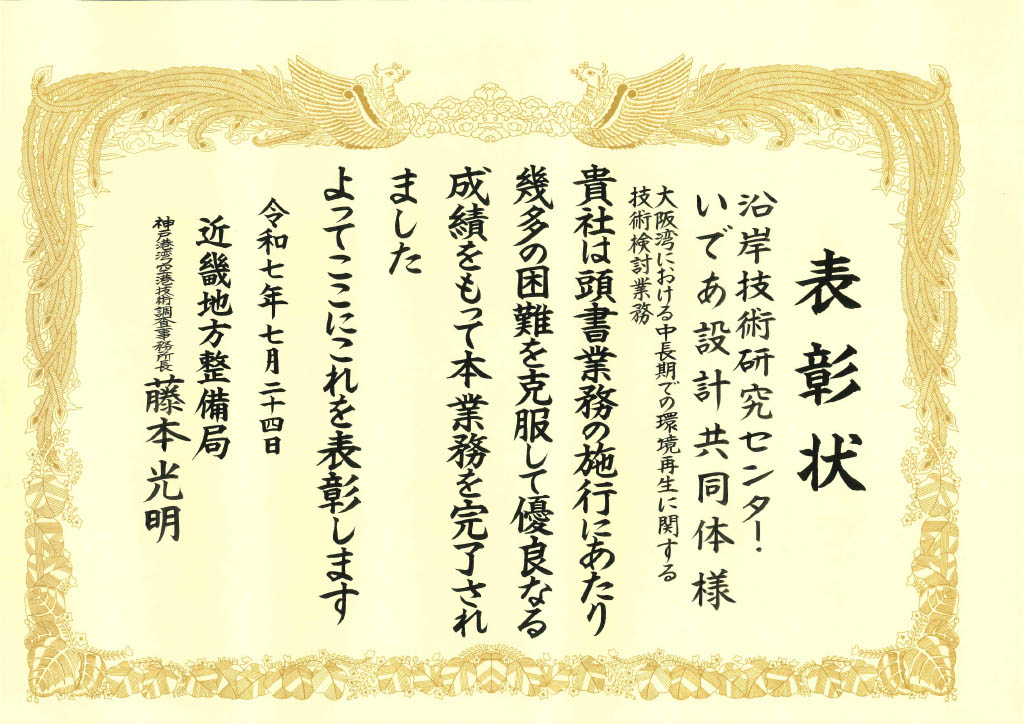 表彰状
沿岸技術研究センター・
いであ設計共同体様
大阪湾における中長期での環境再生に関する
技術検討業務
貴社は頭書業務の施行にあたり
幾多の困難を克服して優良なる
成績をもって本業務を完了され
ました
よってここにこれを表彰します
令和七年七月二十四日
近畿地方整備局
神戸港湾空港技術調査事務所長
藤本光明